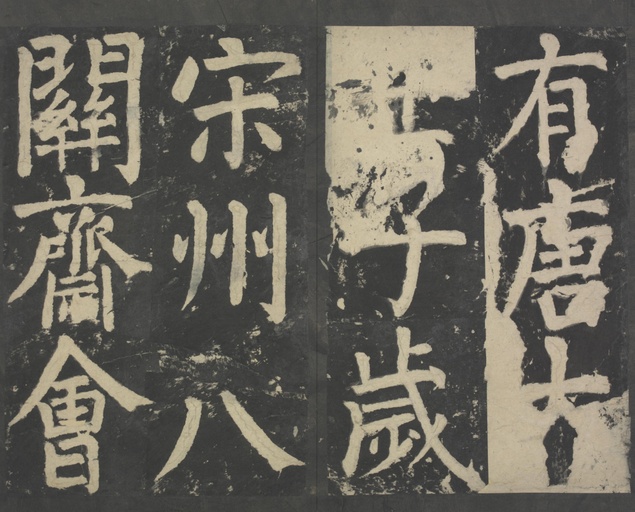 有唐大
子歲
宋州八
關齋會